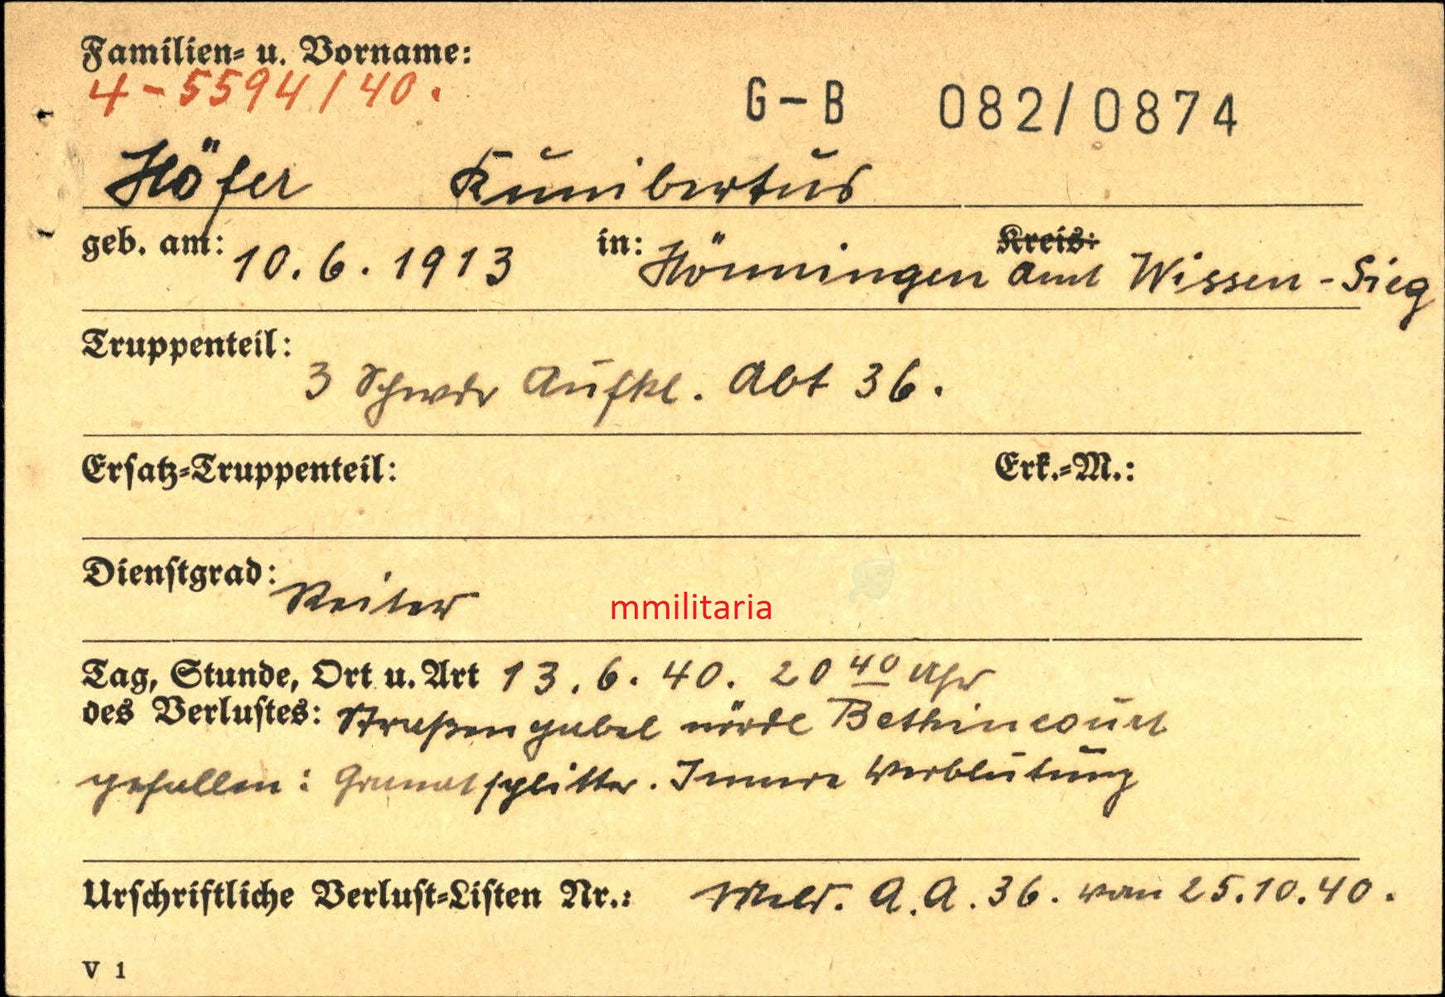 Familien- u. Vorname:
4-5594/40.
G-B 082/0874
Höfer Kunibertus
geb. am: 10.6.1913 in: Hönningen Kreis: Amt Wissen-Sieg
Truppenteil:
3 Schwdr Aufkl. Abt 36.
Ersatz-Truppenteil: Erk.-M.:
Dienstgrad: Reiter
mmilitaria
Tag, Stunde, Ort u. Art 13.6.40. 20 40 Uhr
des Verlustes: Straßengabel nördl Bethincourt
gefallen: Granatsplitter. Innere Verblutung
Urschriftliche Verlust-Listen Nr.: Meld. A.A. 36. vom 25.10.40.
V 1